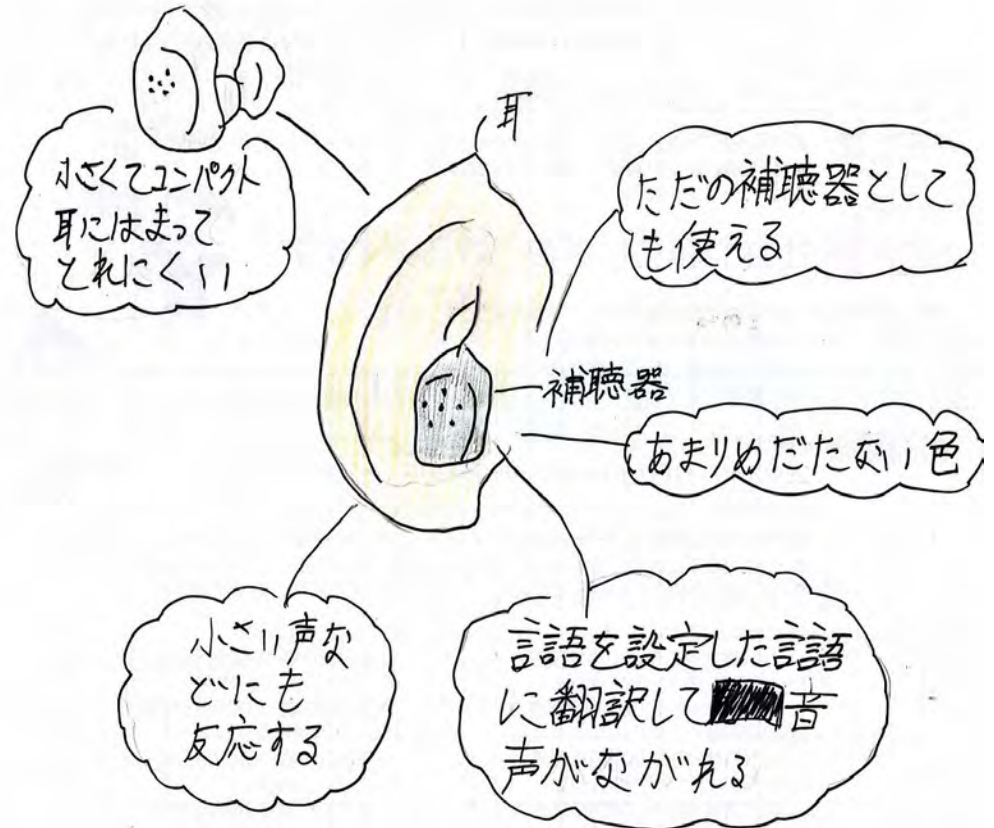 耳
小さくてコンパクト
耳にはまって
とれにくい
ただの補聴器として
も使える
補聴器
あまりめだたない色
小さい声な
どにも
反応する
言語を設定した言語
に翻訳して音
声がながれる